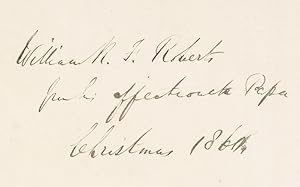 William R. F. Roberts
from his affectionate Papa
Christmas 186